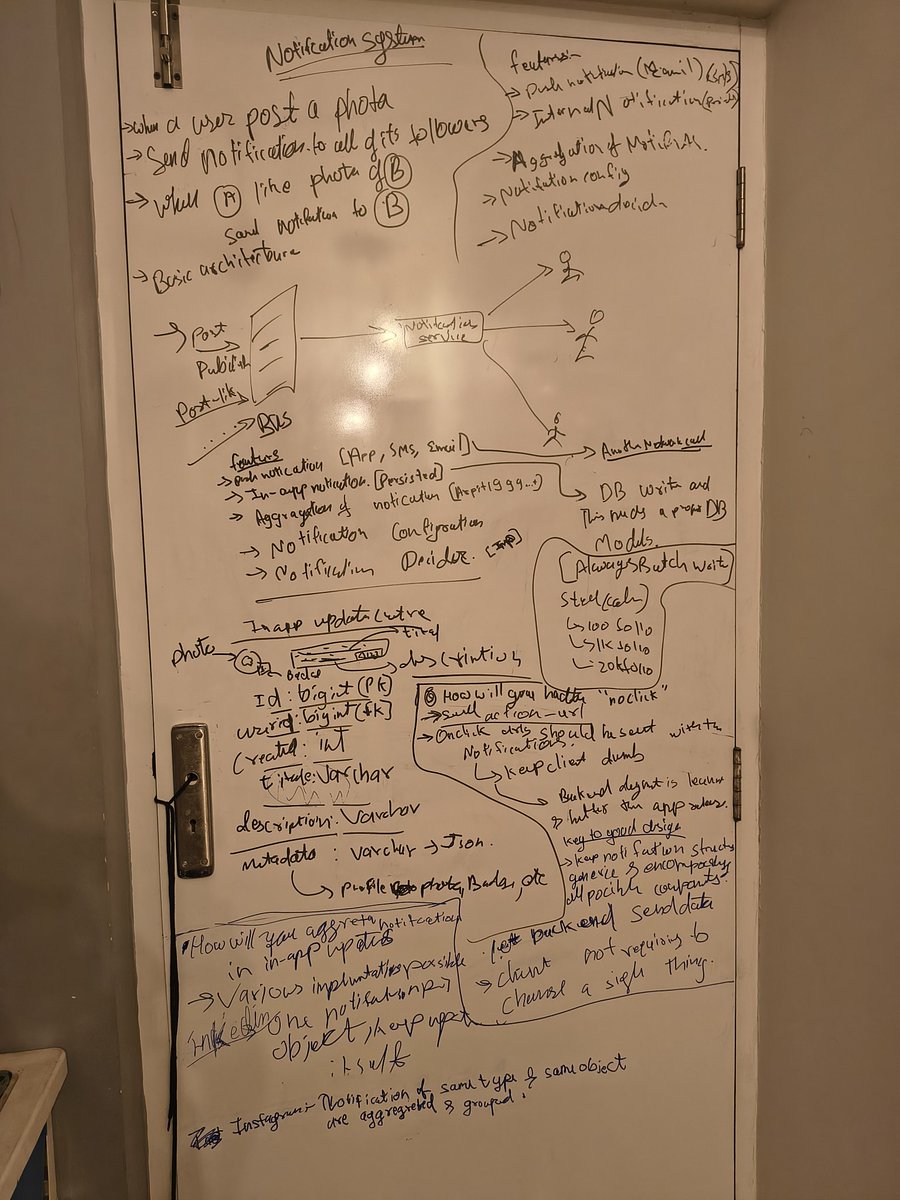 Notification system
→ when a user post a photo
→ Send notification to all of its followers
→ when A like photo of B
send notification to B
→ Basic architecture
features
→ push notification (Email) (SMS)
→ Internal Notification
→ Aggregation of
→ Notifation config
→ Notification
→ Post
Publish
Post-lik
Notification
service
features
→ push notification [App, SMS, Email]
→ In-app notification [Persisted]
→ Aggragation of notication
→ Notification Configuration
→ Notification Decider
→ DB write and
This needs a proper DB
Models.
[Always Batch write]
↳ 100 follo
↳ 1k follo
↳ 20k follo
In app update centre
photo
Id : bigint (PK)
userid : bigint (fk)
Created : int
title : Varchar
description : Varchar
metadata : varchar → Json.
↳ profile photo, Badge, etc
How will you "noclick"
→ send action-url
→ Onclick urls should be sent with the
Notifications.
↳ Keep client dumb
→ Backend is
better than app release.
key to good design
→ keep notification
generic & encompassing
all possible
let backend send data
→ client not requiring to
change a sigle thing.
• How will you aggreta notification
in in-app updates
→ Various possible
one notification per
object, keep
itself
Instagram:- Notification of same type & same object
are aggregreted & grouped.